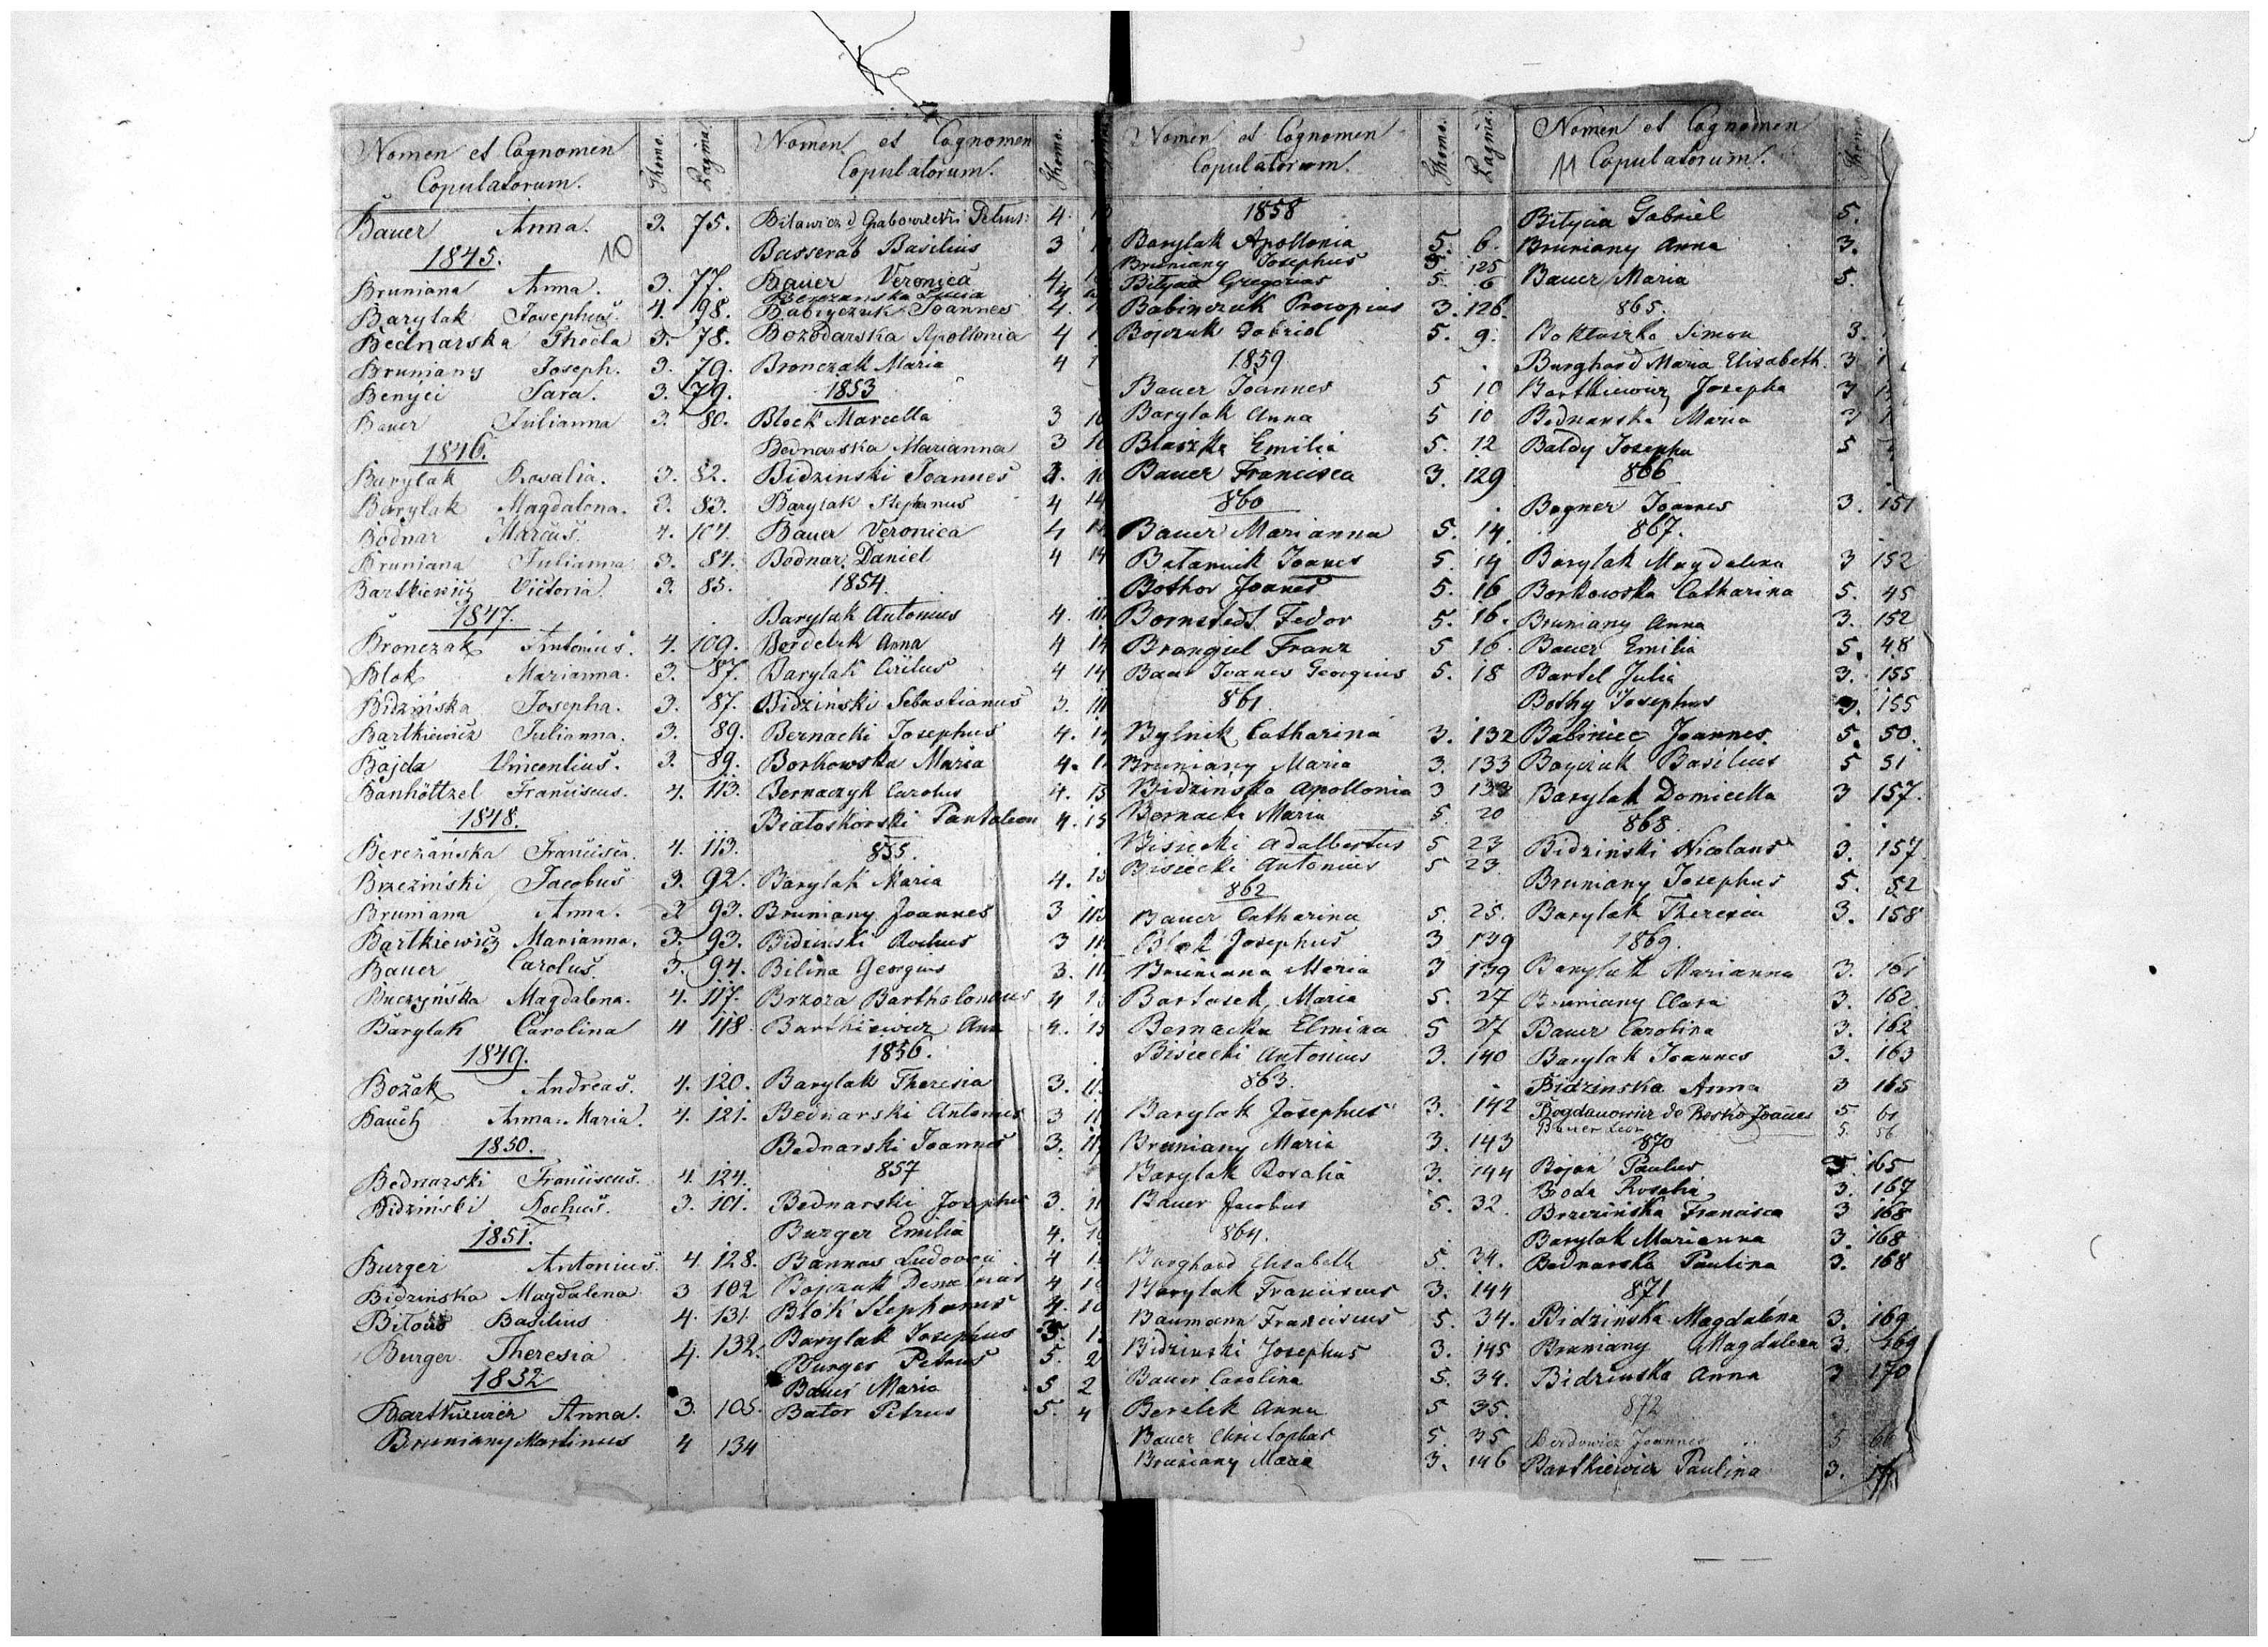 Nomen et Cognomen
Copulatorum.
Thomo.
Pagina.
Bauer Anna. 3. 75.
10
1845.
Bruniana Anna. 3. 77.
Barylak Josephus. 4. 98.
Bednarska Thecla 3. 78.
Bruniany Joseph. 3. 79.
Benyei Sara. 3. 79.
Bauer Julianna 3. 80.
1846.
Barylak Rosalia. 3. 82.
Barylak Magdalena. 3. 83.
Bodnar Marcus. 4. 104.
Bruniana Julianna 3. 84.
Bartkiewicz Victoria. 3. 85.
1847.
Bronczak Antonius. 4. 109.
Blok Marianna. 3. 87.
Bidzińska Josepha. 3. 87.
Bartkiewicz Julianna. 3. 89.
Bajda Vincentius. 3. 89.
Banhöttzel Franciscus. 4. 113.
1848.
Bereżańska Francisca. 4. 113.
Brzeziński Jacobus 3. 92.
Bruniana Anna. 3 93.
Bartkiewicz Marianna. 3. 93.
Bauer Carolus. 3. 94.
Buczyńska Magdalena. 4. 117.
Barylak Carolina 4 118
1849.
Bożak Andreas. 4. 120.
Bauch Anna Maria. 4. 121.
1850.
Bednarski Franciscus. 4. 124.
Bidziński Rochus. 3. 101.
1851.
Burger Antonius. 4. 128.
Bidzińska Magdalena 3 102
Biłous Basilius 4. 131.
Burger Theresia 4. 132.
1852
Bartkiewicz Anna. 3. 105.
Bruniany Martinus 4 134
Nomen et Cognomen
Copulatorum.
Thomo.
Petrus 4.
Basserab Basilius 3
Bauer Veronica 4
Berezanska Lucia 4
Babiyczuk Joannes 4.
Bozodarska Apollonia 4
Bronczak Maria 4
1853
Block Marcella 3
Bednarska Marianna 3
Bidzinski Joannes
Barylak Stephanus 4 14
Bauer Veronica 4
Bodnar Daniel 4 14
1854.
Barylak Antonius 4.
Bordeluk Anna 4 14
Barylak Cirilus 4 14
Bidziński Sebastianus 3.
Bernacki Josephus 4.
Borkowska Maria 4.
Bernaczyk Carolus 4. 15
Białoskorski Pantaleon 4. 15
855.
Barylak Maria 4. 15
Bruniany Joannes 3
Bidzinski Rochus 3
Bilina Georgius 3.
Brzoza Bartholomaus 4
Bartkiewicz Anna 4. 15
1856.
Barylak Theresia 3.
Bednarski Antonius 3
Bednarski Joannes 3.
857
Bednarski Josephus 3.
Burger Emilia 4.
Bannas Ludovica 4
Bojczuk 4
Blok Stephanus 4.
Barylak Josephus 5.
Burger Petrus 5. 2
Bauer Maria 5 2
Bator Petrus 5. 4
Nomen et Cognomen
Copulatorum.
Thomo.
Pagina.
1858
Barylak Apollonia 5. 6.
Bruniany Josephus 3. 125
Gregorius 5. 6
Babinczuk Procopius 3. 126.
Bojczuk Gabriel 5. 9.
1859
Bauer Joannes 5 10
Barylak Anna 5 10
Blaszke Emilia 5. 12
Bauer Francisca 3. 129
860
Bauer Marianna 5. 14.
Joanes 5. 14
Bothor Joanes 5. 16
Bornstedt Fedor 5. 16.
Brangiel Franz 5 16
Baar Joanes Georgius 5. 18
861.
Bylnik Catharina 3. 132
Bruniany Maria 3. 133
Bidzinska Apollonia 3 133
Bernacki Maria 5. 20
Bisiecki Adalbertus 5 23
Bisiecki Antonius 5 23
862
Bauer Catharina 5. 25.
Blok Josephus 3 139
Bruniana Maria 3 139
Bartosek Maria 5. 27
Bernacka Elmira 5 27
Bisiecki Antonius 3. 140
863.
Barylak Josephus 3. 142
Bruniany Maria 3. 143
Barylak Rosalia 3. 144
Bauer Jacobus 5. 32.
864.
Burghard Elisabeth 5. 34.
Barylak Franciscus 3. 144
Baumann Franciscus 5. 34.
Bidzinski Josephus 3. 145
Bauer Carolina 5. 34.
Berelek Anna 5 35.
Bauer Christophor 5. 35
Bruniany Maria 3. 146
Nomen et Cognomen
11 Copulatorum.
Gabriel 5.
Bruniany Anna 3.
Bauer Maria 5.
865.
Simon 3.
Burghard Maria Elisabeth. 3
Bartkiewicz Josepha 3
Bednarska Maria 3
Baldy Josepha 5
866
Bogner Joanes 3. 151
867.
Barylak Magdalena 3 152
Borkowska Catharina 5. 45
Bruniany Anna 3. 152
Bauer Emilia 5. 48
Bartel Julia 3. 155
Bothy Josephus 3. 155
Babiniec Joannes 5. 50.
Boyczuk Basilius 5 51
Barylak Domicella 3 157.
868.
Bidziński Nicolaus 3. 157
Bruniany Josephus 5. 52
Barylak Theresia 3. 158
1869.
Barylak Marianna 3. 161
Bruniany Clara 3. 162.
Bauer Carolina 3. 162
Barylak Joannes 3. 163
Bidzinska Anna 3 165
Bogdanowicz de Rosko Joannes 5. 61
Bauer Leon 5. 56
870
Bojan Paulus 3. 165
Boda Rosalia 3. 167
Brzezińska Francisca 3 168
Barylak Marianna 3. 168
Bednarska Paulina 3. 168
871
Bidzińska Magdalena 3. 169
Bruniany Magdalena 3. 169
Bidzinska Anna 3 170
872
Joannes 5
Bartkiewicz Paulina 3.